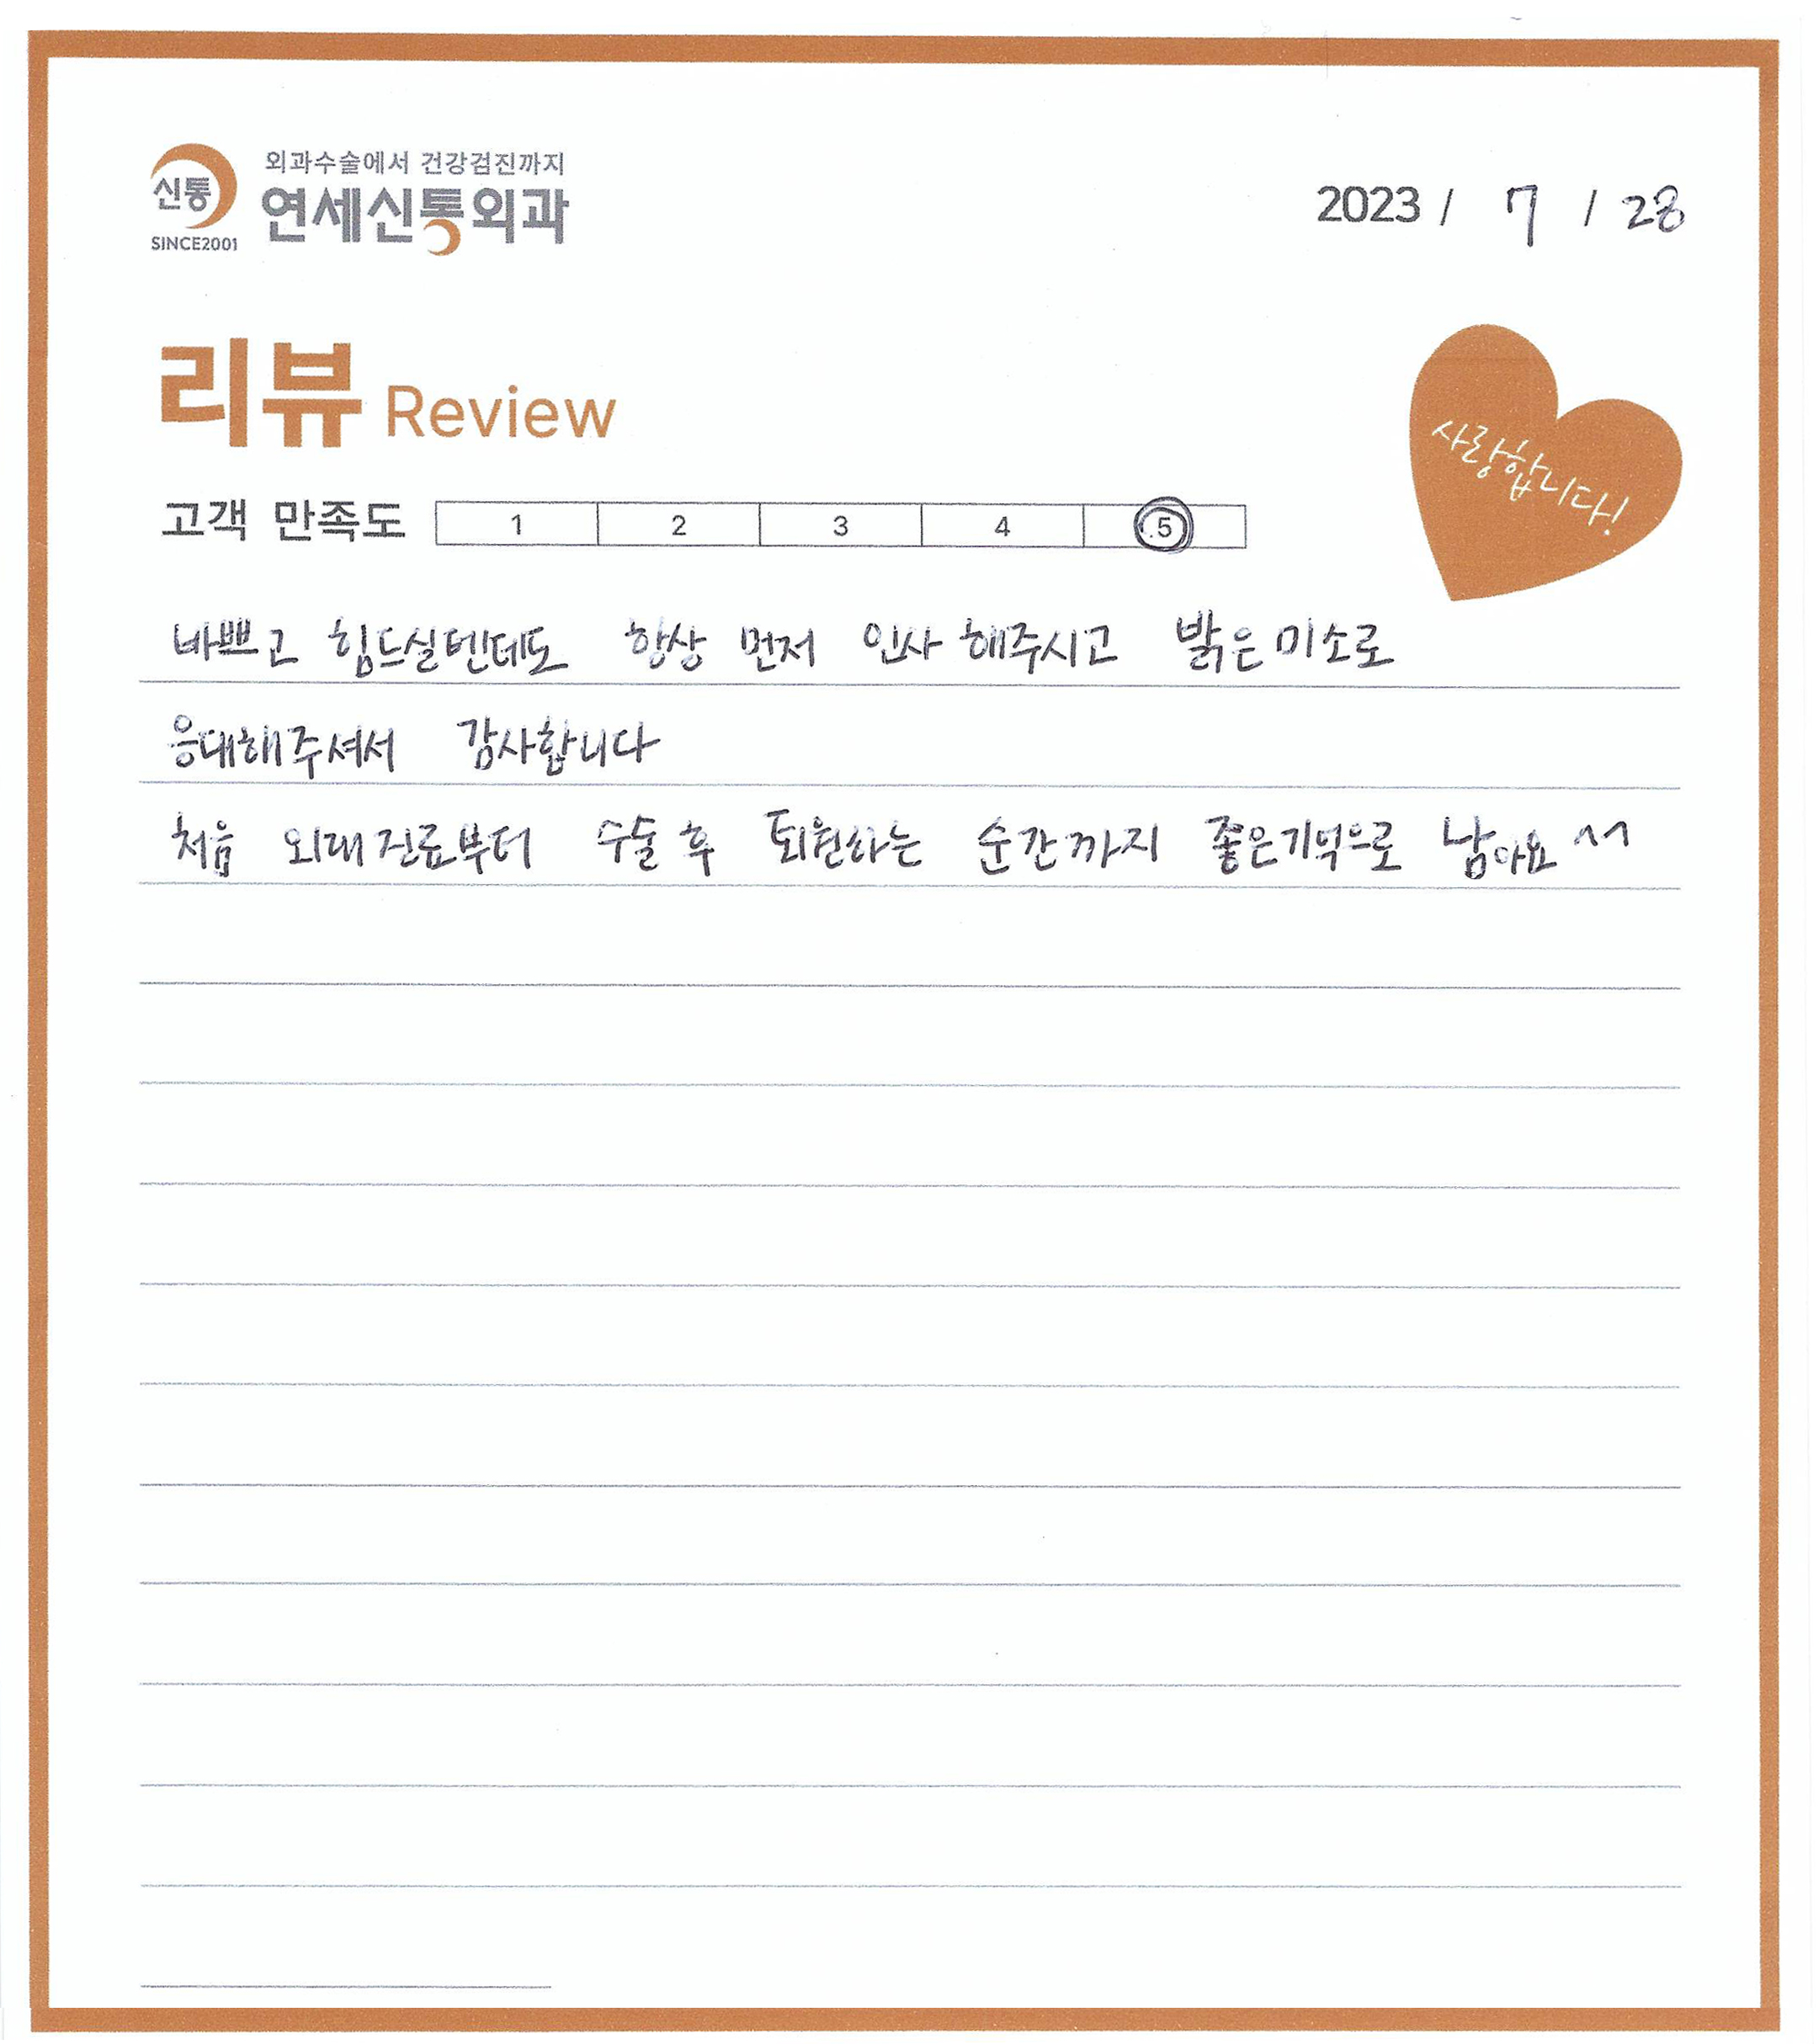 외과수술에서 건강검진까지
신통 연세신통외과
SINCE2001
2023 / 7 / 28
리뷰 Review
사랑합니다!
고객 만족도 1 2 3 4 5
바쁘고 힘드실텐데도 항상 먼저 인사 해주시고 밝은 미소로
응대해주셔서 감사합니다
처음 외래진료부터 수술 후 퇴원하는 순간까지 좋은기억으로 남아요 ^^